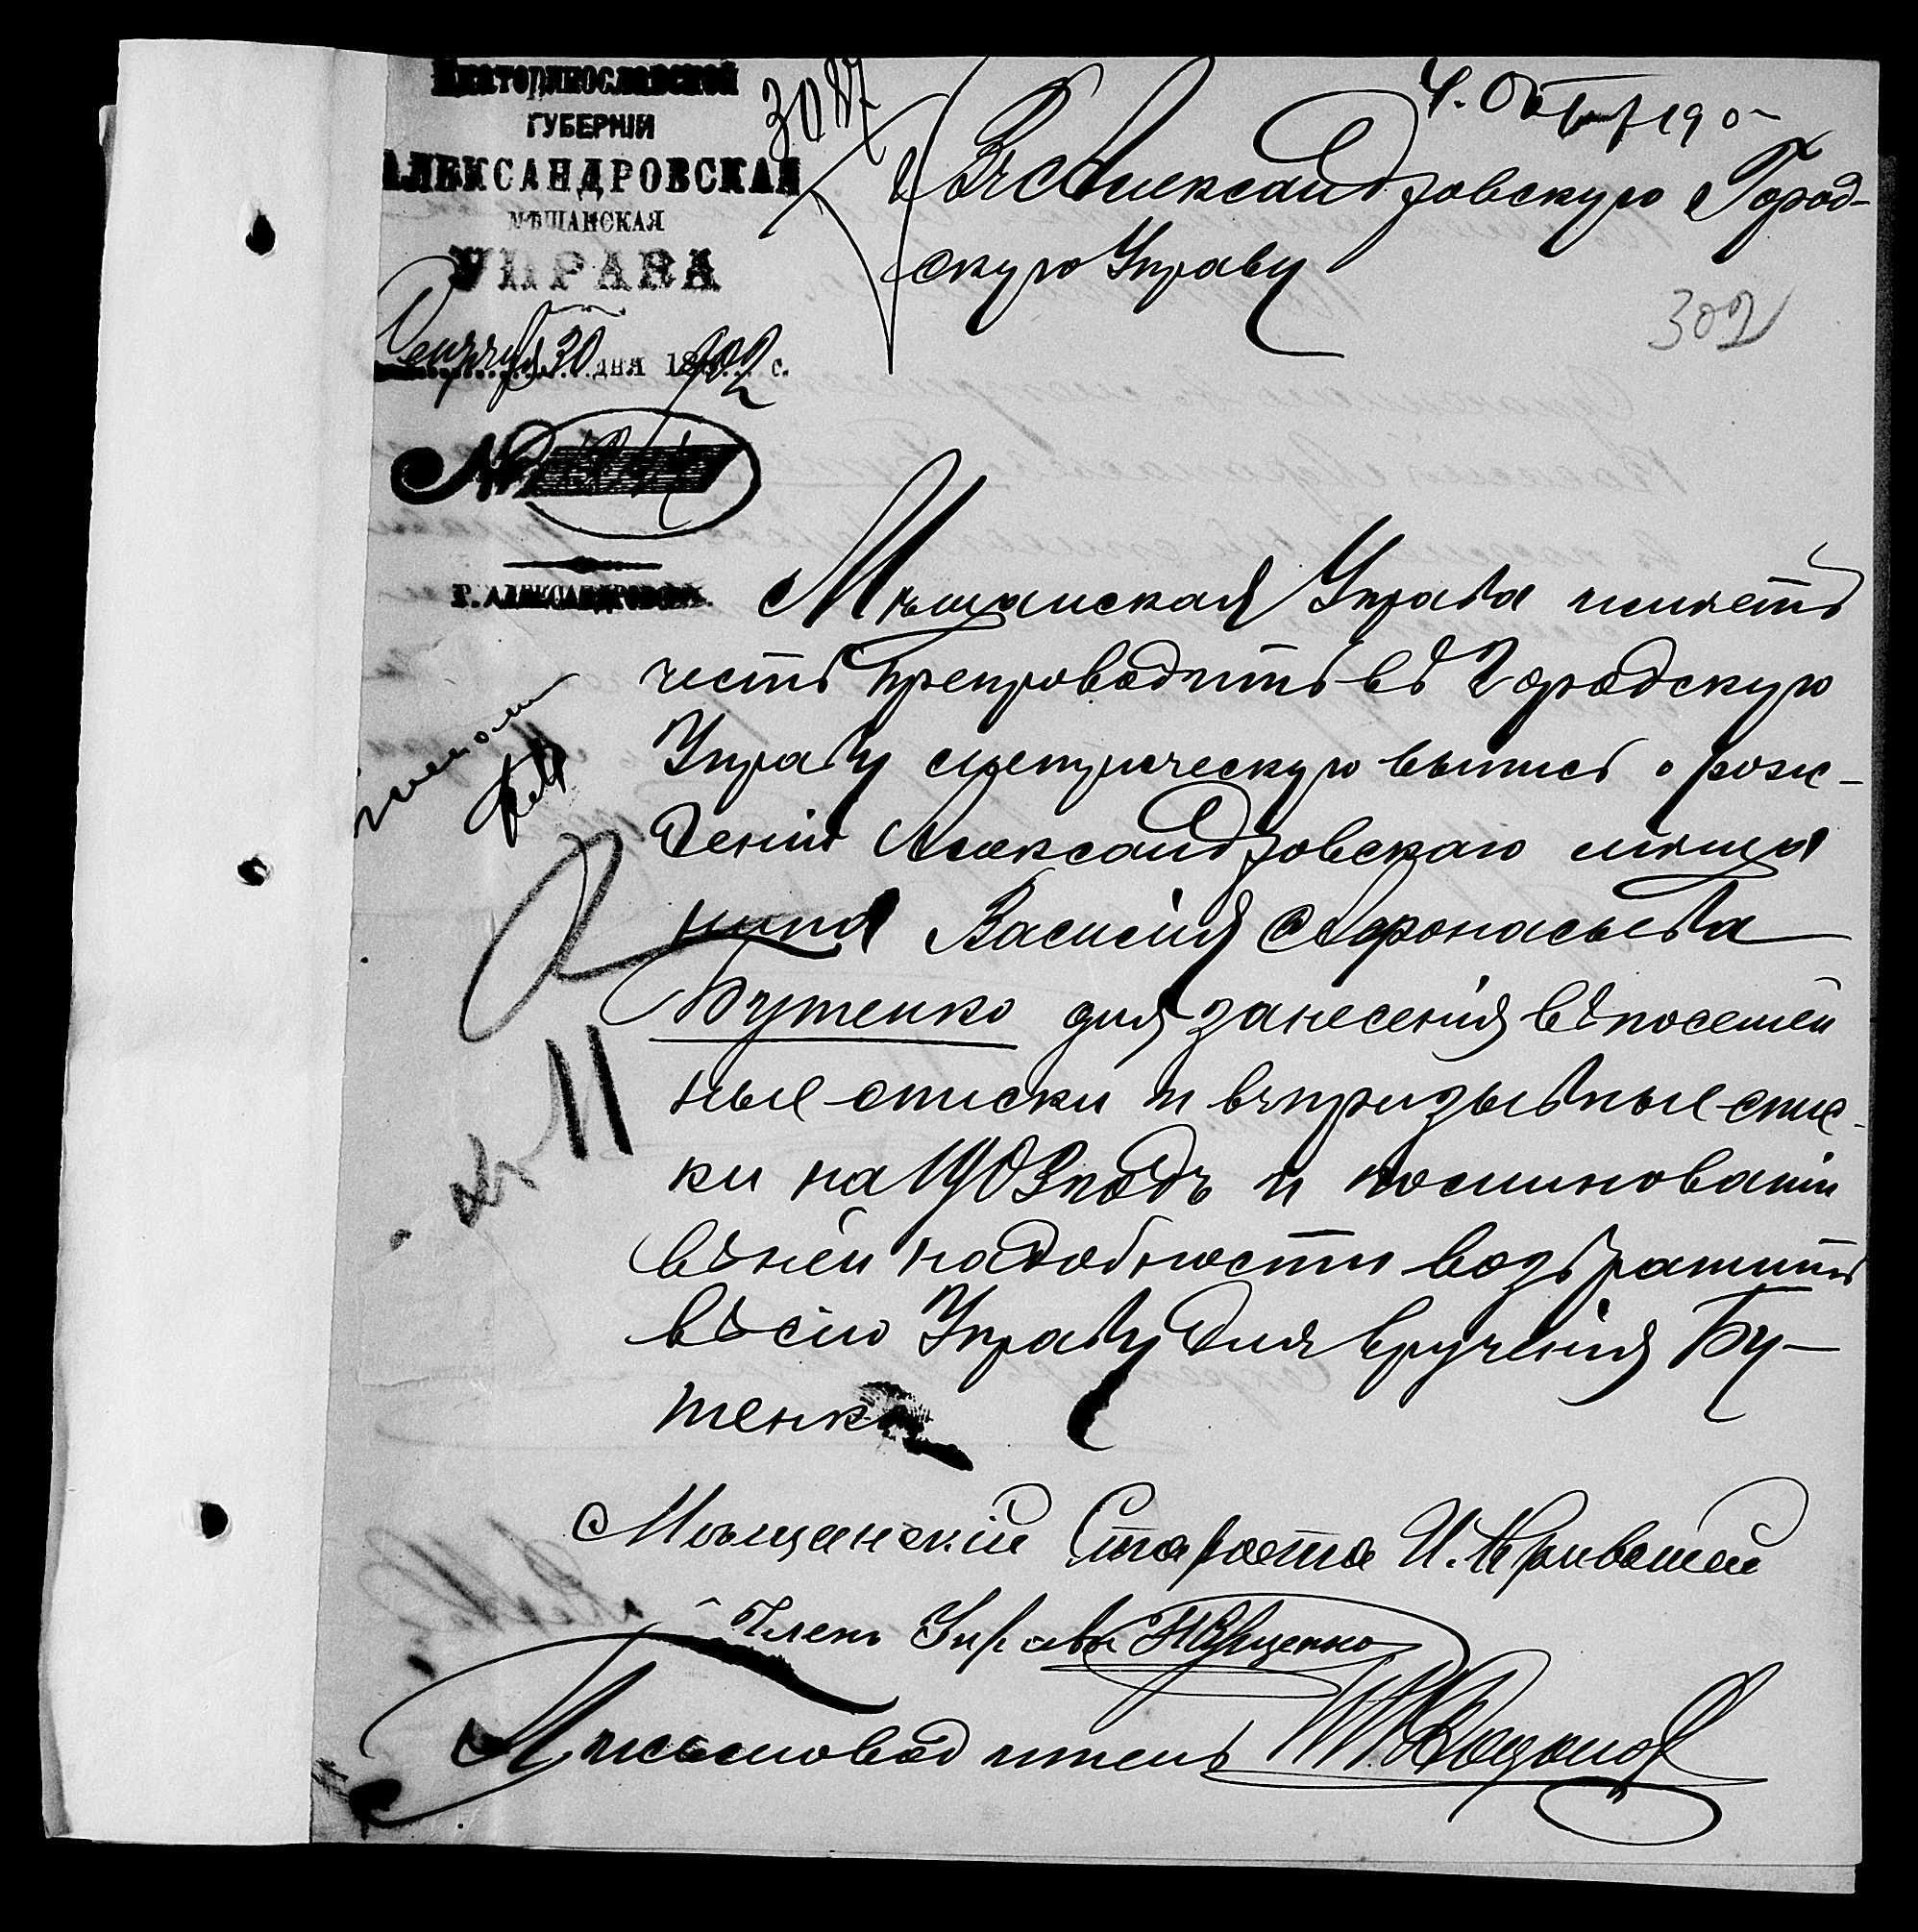 Екатеринославской
ГУБЕРНІИ
АЛЕКСАНДРОВСКАЯ
МѢЩАНСКАЯ
УПРАВА
30 дня 1902 с.
№
Г. АЛЕКСАНДРОВСКЪ.
4. Октяб 190
Въ Александровскую Город-
скую Управу
302
Мѣщанская Управа имѣетъ
честь препроводить въ Городскую
Управу метрическую выпись о рож-
деніи Александровскаго мѣща
нина Василія Афонасьева
Бутенко для занесенія въ посемей
ные списки и въ призывные спис-
ки на 1903 годъ и по минованіи
въ ней надобности возвратить
въ сію Управу для врученія Бу-
тенко
11
Мѣщанскій Староста И.
Членъ Управы
Письмоводитель